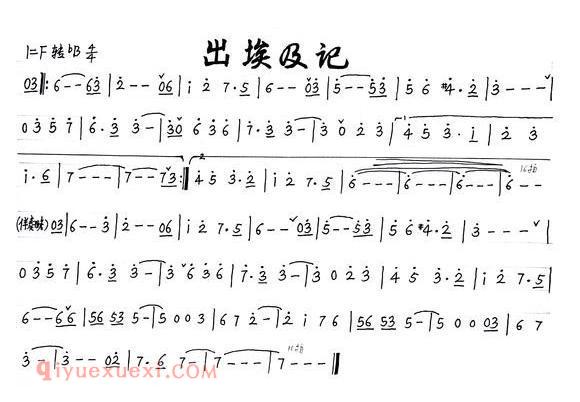 出埃及记
1=F 转ᵇB 4/4
03|:6--63|2--06|i 2 7·5|6--03|5--53|5 6 #4·2|3---|
0 3 5 7|6·3 3-|30 6 3 6|7·3 3-|3 0 2 3|4 5 3·i|2 3
i·6|7---|7--73:|4 5 3·2|i 2 7·5|6---|6---|6---|6--
(伴奏) 03|6--3|2--06|i 2 7·5|6--03|5--53|5 6 #4·2|3---|
0 3 5 7|6·3 3-|3 6 3 6|7·3 3-|3 0 2 3|4 5 3·2|i 2 7·5|
6--66|56 53 5-|5 0 0 3|6 7 2-|2 i 7 6|56 53 5-|5 0 0 03|6 7
3-|3--02|7·6 7-|7---|7---||
qiyuexuexi.com